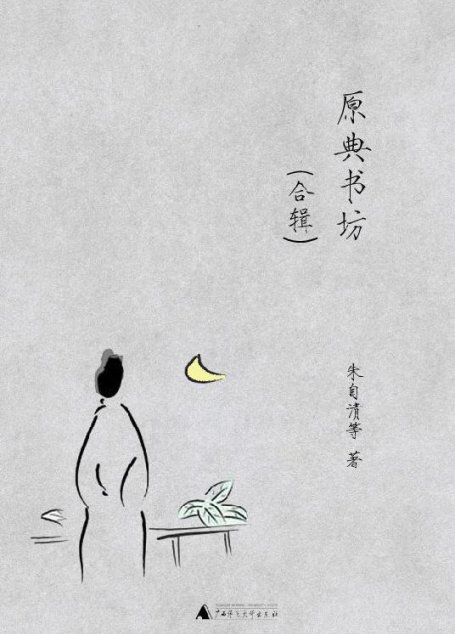 原典书坊
(合辑)
朱自清等 著
广西师范大学出版社